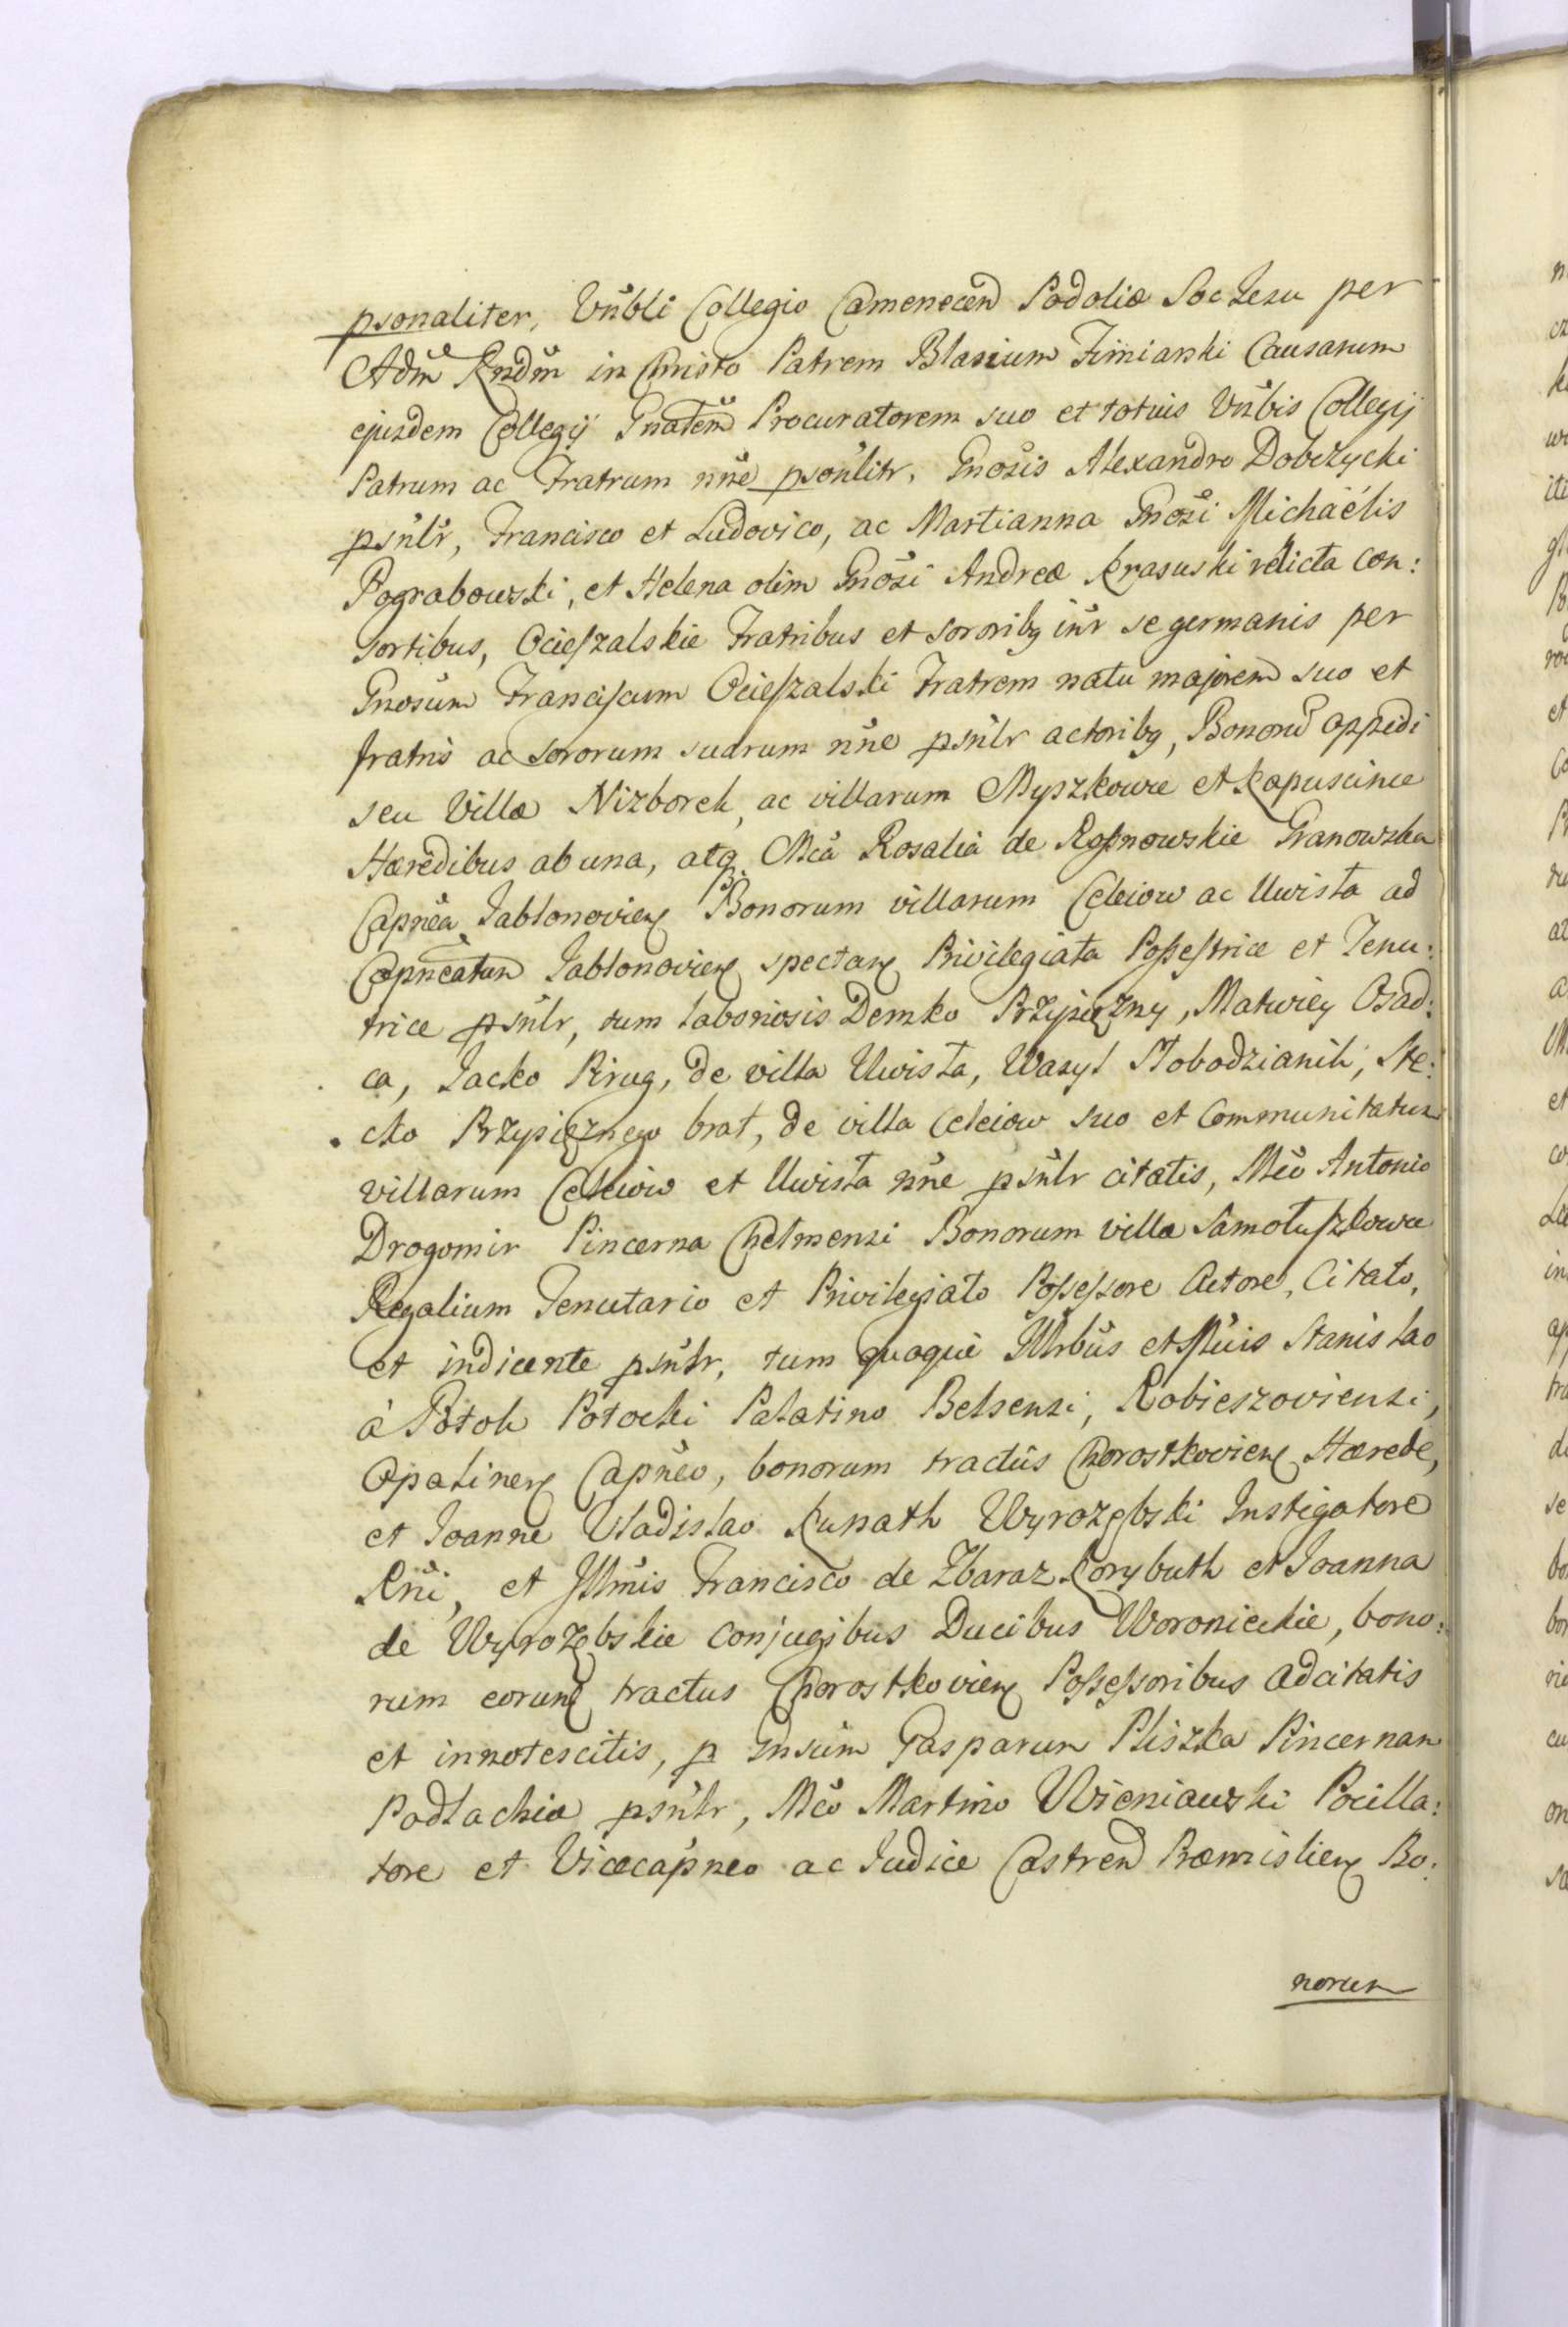 psonaliter, Vnbli Collegio Camenecen Podoliæ Soc Jesu per
Adm Rndm in Christo Patrem Blasium Fimianski Causarum
ejusdem Collegij Gnatem Procuratorem suo et totius Vnbis Collegij
Patrum ac Fratrum nne psonlitr, Gnosis Alexandro Dobczycki
psnlr, Francisco et Ludovico, ac Martianna Gnosi Michaélis
Pograbowski, et Helena olim Gnosi Andreæ Krasuski relicta con:
sortibus, Ocieszalskie Fratribus et sororibq inr se germanis per
Gnosum Franciscum Ocieszalski Fratrem natu majorem suo et
fratris ac sororum suarum nne psnlr actoribq, Bonoru oppidi
seu Villæ Nizborek, ac villarum Myszkowce et Kapuscince
Hæredibus ab una, atq Mca Rosalia de Granowska
Capnea Jablonovien Bonorum villarum Celeiow ac Uwista ad
Capneatum Jablonovien spectan Privilegiata Possestrice et Tenu:
trice psnlr, tum laboriosis Demko Przysiężny, Matwiey Osad:
ca, Jacko Pirug, de villa Uwista, Wasyl Słobodzianik, Ste:
cko Przysiężnego brat, de villa Celeiow suo et Communitatum
villarum Celeiow et Uwista nne psnlr citatis, Mco Antonio
Drogomir Pincerna Chelmensi Bonorum villæ Samołuszkowce
Regalium Tenutario et Privilegiato Possessore Actore, Citato,
et indicente psnlr, tum quoque Illrbus et Mcis Stanislao
à Potok Potocki Palatino Belsensi, Robieszoviensi,
Opalinen Capneo, bonorum tractûs Chorostkovien Hærede,
et Joanne Vladislao Kunath Wyrozębski Instigatore
Rni, et Illmis Francisco de Zbaraz Korybuth et Joanna
de Wyrozębskie conjugibus Ducibus Woronieckie, bono:
rum eorund tractus Chorostkovien Possessoribus adcitatis
et innotescitis, p Gnsum Gasparum Pliszka Pincernam
Podlachiæ psnlr, Mco Martino Wieniawski Pocilla:
tore et Vicecapneo ac Judice Castren Præmislien Bo:
norum